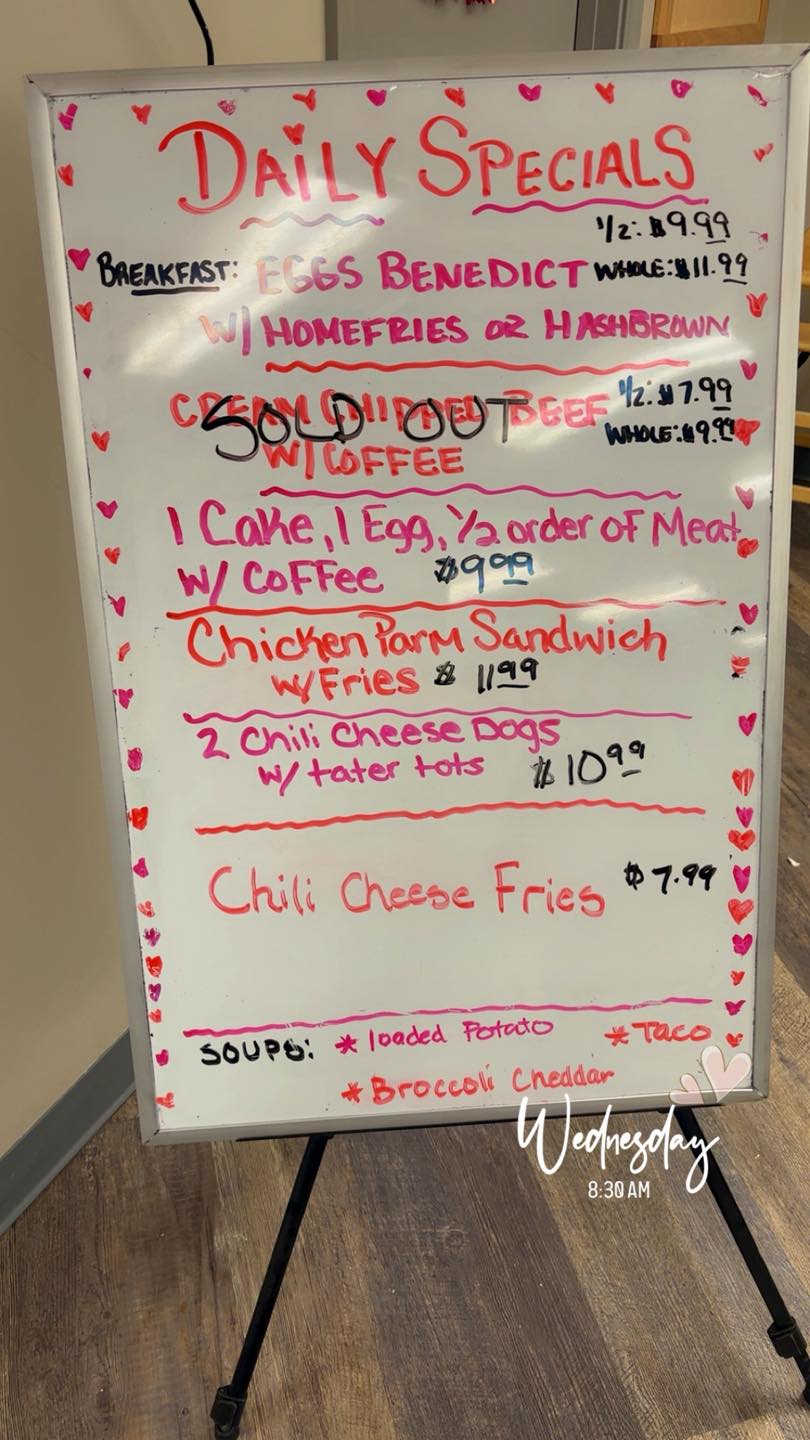 DAILY SPECIALS
1/2: $9.99
BREAKFAST: EGGS BENEDICT WHOLE: $11.99
W/ HOMEFRIES OR HASHBROWN
CREAM CHIPPED BEEF 1/2: $7.99
SOLD OUT WHOLE: $9.99
W/ COFFEE
1 Cake, 1 Egg, 1/2 order of Meat
W/ Coffee $9.99
Chicken Parm Sandwich
w/ Fries $11.99
2 Chili Cheese Dogs
w/ tater tots $10.99
Chili Cheese Fries $7.99
SOUPS: * loaded Potato * Taco
* Broccoli Cheddar
Wednesday
8:30 AM